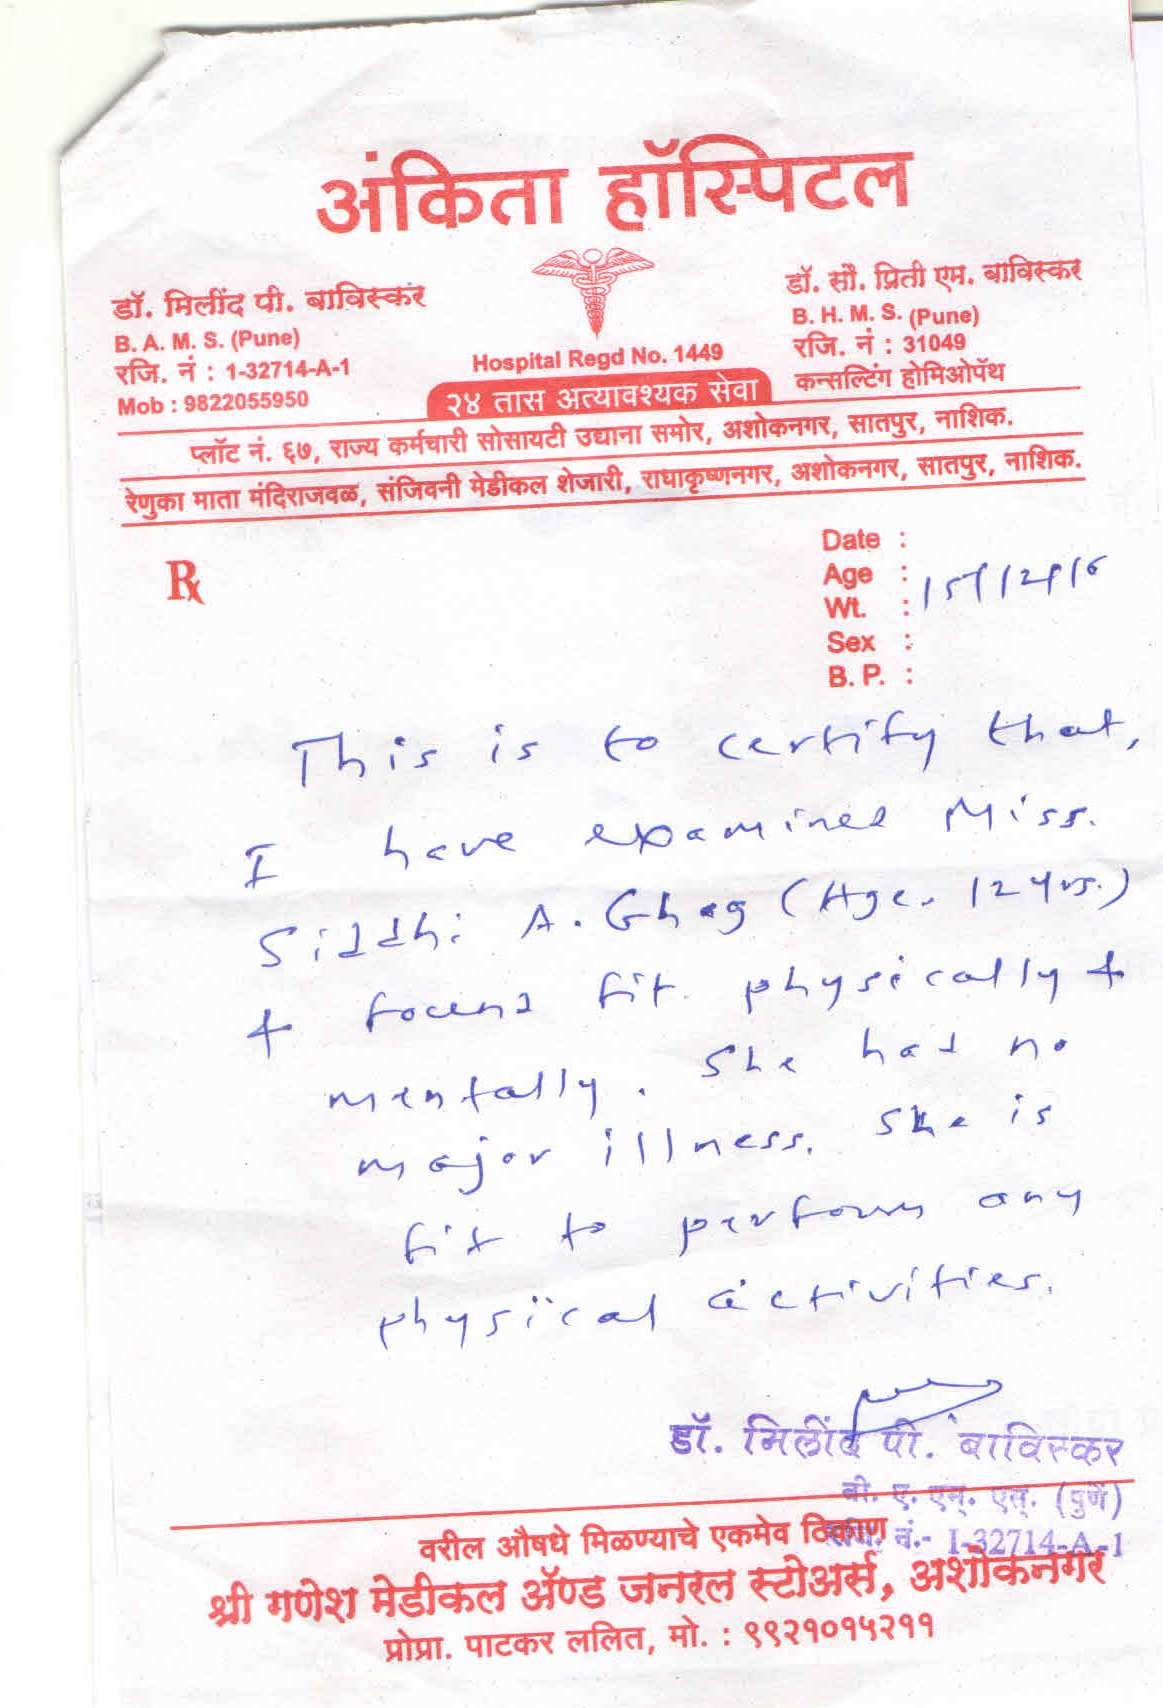 अंकिता हॉस्पिटल
डॉ. मिलींद पी. बाविस्कर
B. A. M. S. (Pune)
रजि. नं : 1-32714-A-1
Mob : 9822055950
Hospital Regd No. 1449
२४ तास अत्यावश्यक सेवा
डॉ. सौ. प्रिती एम. बाविस्कर
B. H. M. S. (Pune)
रजि. नं : 31049
कन्सल्टिंग होमिओपॅथ
प्लॉट नं. ६७, राज्य कर्मचारी सोसायटी उद्याना समोर, अशोकनगर, सातपुर, नाशिक.
रेणुका माता मंदिराजवळ, संजिवनी मेडीकल शेजारी, राधाकृष्णनगर, अशोकनगर, सातपुर, नाशिक.
Rx
Date :
Age :
Wt. :
Sex :
B. P. :
This is to certify that,
I have examined Miss.
Siddhi A. Ghag (Age. 12 yrs.)
+ found fit physically +
mentally. She had no
major illness. She is
fit to perform any
physical activities.
डॉ. मिलींद पी. बाविस्कर
बी. ए. एम्. एस्. (पुणे)
रजि. नं.- I-32714-A-1
वरील औषधे मिळण्याचे एकमेव ठिकाण
श्री गणेश मेडीकल ॲण्ड जनरल स्टोअर्स, अशोकनगर
प्रोप्रा. पाटकर ललित, मो. : ९९२१०१५२११